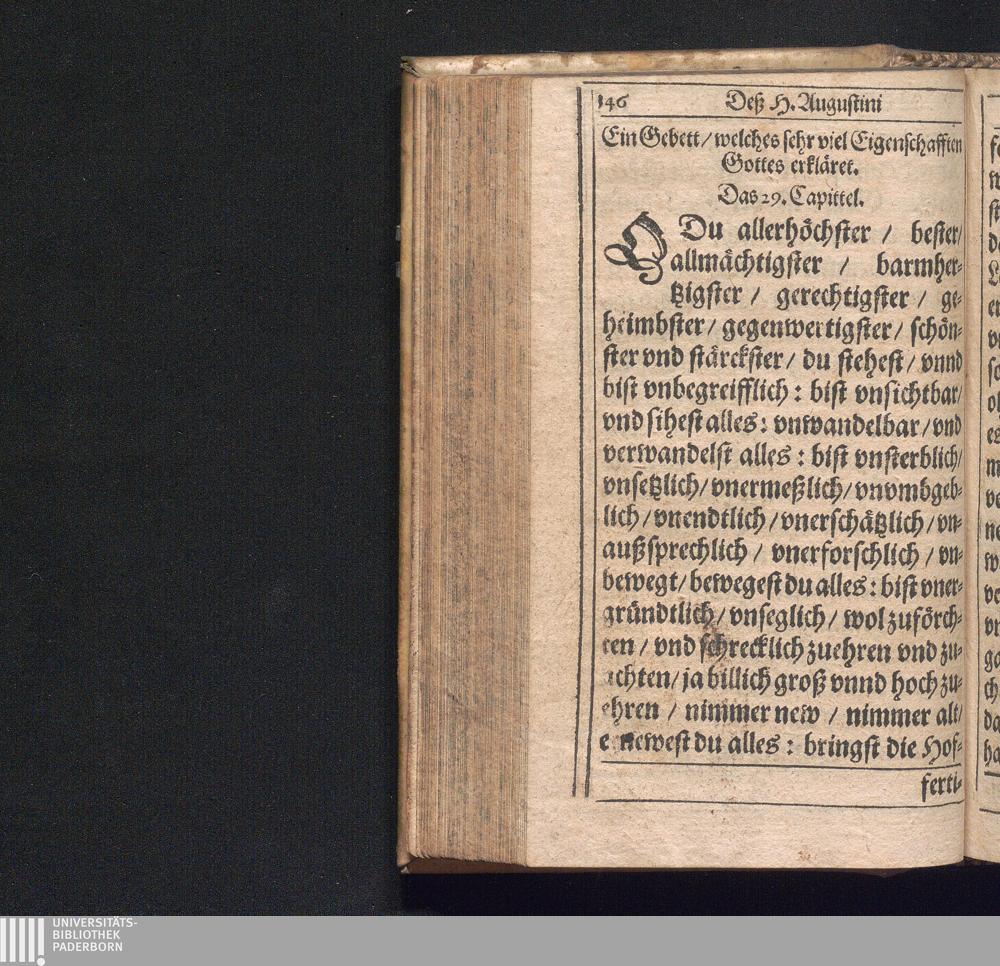 146 Deß H. Augustini
Ein Gebett / welches sehr viel Eigenschafften
Gottes erkläret.
Das 29. Capittel.
O Du allerhöchster / bester /
allmächtigster / barmher⸗
tzigster / gerechtigster / ge⸗
heimbster / gegenwertigster / schön⸗
ster vnd stärckster / du stehest / vnnd
bist vnbegreifflich : bist vnsichtbar /
vnd sihest alles : vnwandelbar / vnd
verwandelst alles : bist vnsterblich /
vnsetzlich / vnermeßlich / vnvmbgeb⸗
lich / vnendtlich / vnerschätzlich / vn⸗
außsprechlich / vnerforschlich / vn⸗
bewegt / bewegest du alles : bist vner⸗
gründtlich / vnseglich / wol zuförch⸗
ten / vnd schrecklich zuehren vnd zu⸗
achten / ja billich groß vnnd hoch zu⸗
ehren / nimmer new / nimmer alt /
ernewest du alles : bringst die Hof⸗
ferti⸗
UNIVERSITÄTS-
BIBLIOTHEK
PADERBORN